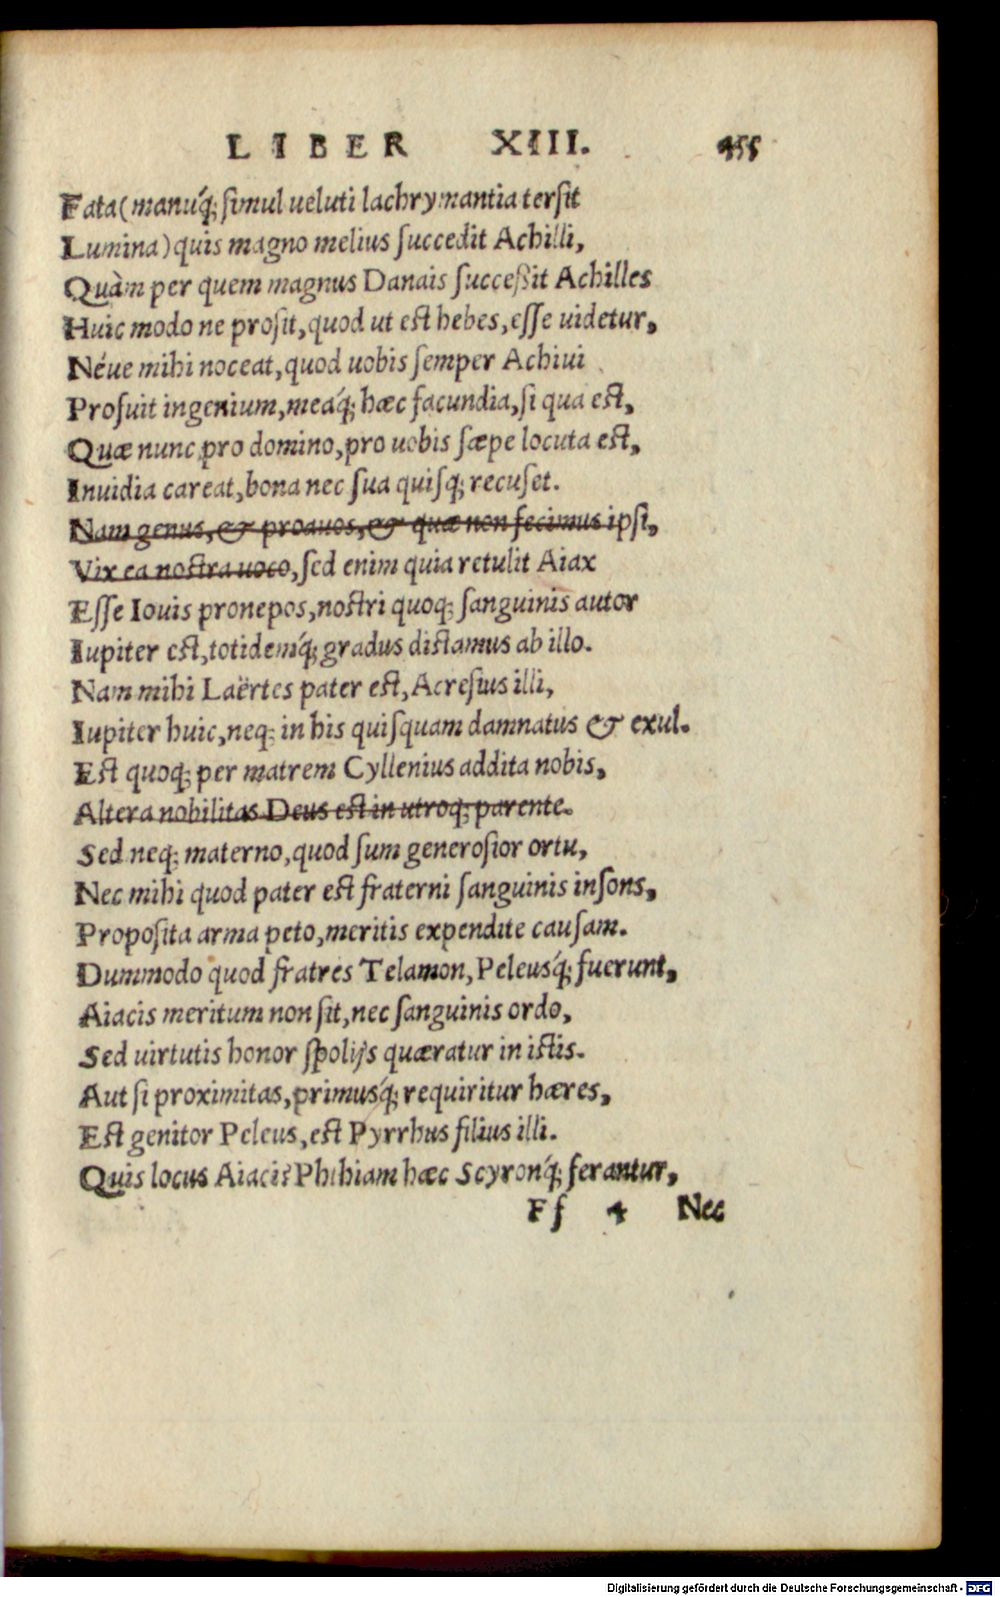 LIBER XIII. 455
Fata (manuq́; simul ueluti lachrymantia tersit
Lumina) quis magno melius succedit Achilli,
Quàm per quem magnus Danais successit Achilles
Huic modo ne prosit, quod ut est hebes, esse uidetur,
Néue mihi noceat, quod uobis semper Achiui
Profuit ingenium, meaq́; hæc facundia, si qua est,
Quæ nunc pro domino, pro uobis sæpe locuta est,
Inuidia careat, bona nec sua quisq; recuset.
Nam genus, & proauos, & quæ non fecimus ipsi,
Vix ea nostra uoco, sed enim quia retulit Aiax
Esse Iouis pronepos, nostri quoq; sanguinis autor
Iupiter est, totidemq́; gradus distamus ab illo.
Nam mihi Laërtes pater est, Acresius illi,
Iupiter huic, neq; in his quisquam damnatus & exul.
Est quoq; per matrem Cyllenius addita nobis,
Altera nobilitas Deus est in utroq; parente.
Sed neq; materno, quod sum generosior ortu,
Nec mihi quod pater est fraterni sanguinis insons,
Proposita arma peto, meritis expendite causam.
Dummodo quod fratres Telamon, Peleusq́; fuerunt,
Aiacis meritum non sit, nec sanguinis ordo,
Sed uirtutis honor spolijs quæratur in istis.
Aut si proximitas, primusq́; requiritur hæres,
Est genitor Peleus, est Pyrrhus filius illi.
Quis locus Aiaci? Phthiam hæc Scyronq́; ferantur,
Ff 4 Nec
Digitalisierung gefördert durch die Deutsche Forschungsgemeinschaft - DFG